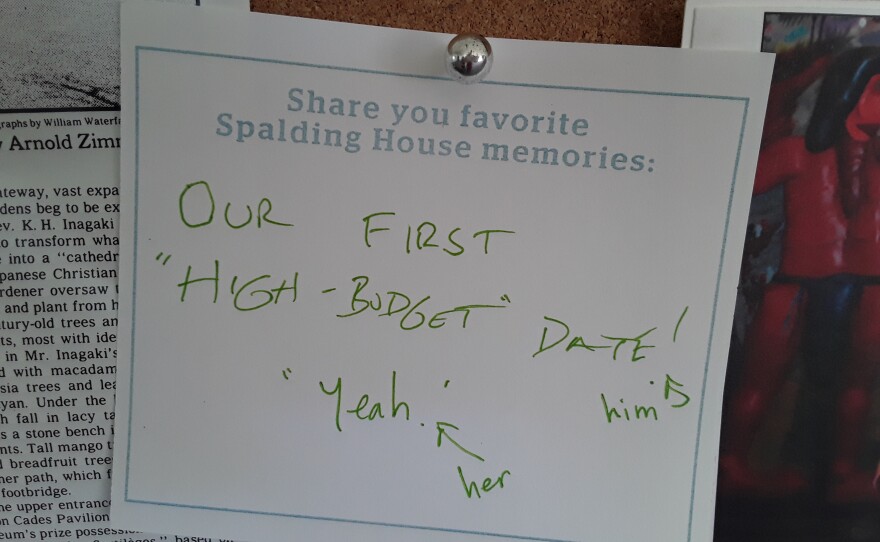 Share you favorite
Spalding House memories:
OUR FIRST
"HIGH-BUDGET"
DATE!
him
"Yeah."
her
graphs by William Waterf
Arnold Zim
ateway, vast expa
dens beg to be ex
ev. K. H. Inagaki
o transform wha
into a "cathedr
panese Christian
rdener oversaw
and plant from h
tury-old trees an
ts, most with ide
in Mr. Inagaki's
d with macadam
sia trees and lea
yan. Under the
h fall in lacy ta
s a stone bench
nts. Tall mango t
d breadfruit tree
her path, which f
footbridge.
he upper entranc
n Cades Pavilion
eum's prize possess